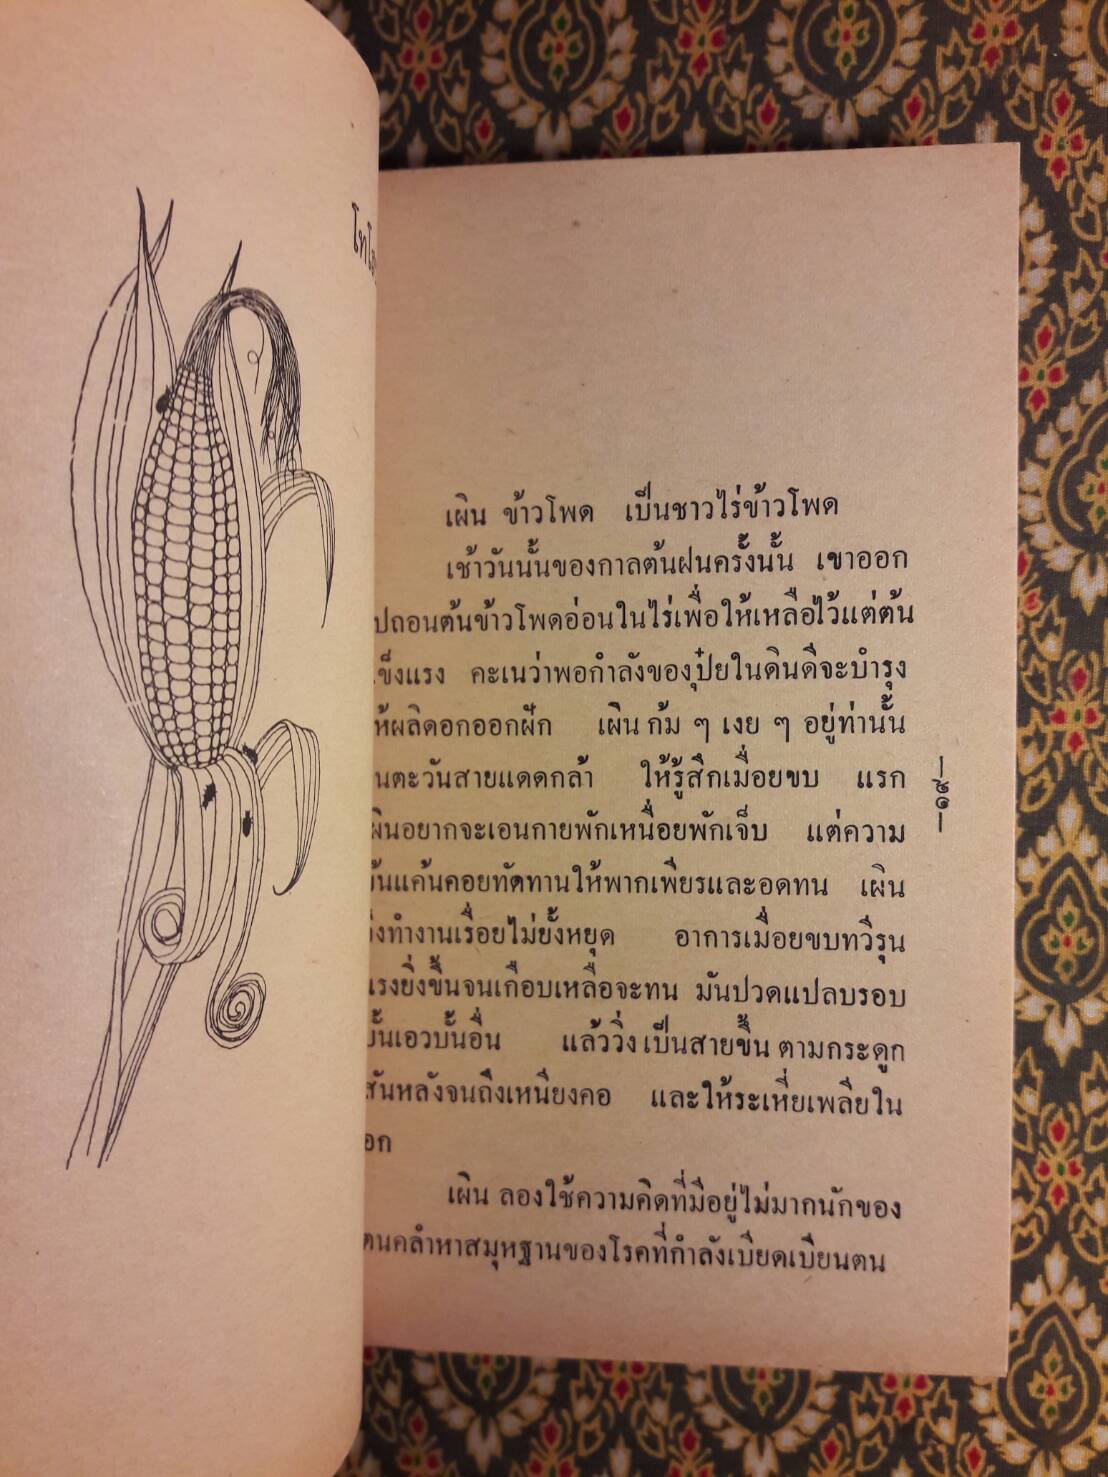 เผิน ข้าวโพด เป็นชาวไร่ข้าวโพด
เช้าวันนั้นของกาลต้นฝนครั้งนั้น เขาออก
ปถอนต้นข้าวโพดอ่อนในไร่เพื่อให้เหลือไว้แต่ต้น
ข็งแรง คะเนว่าพอกำลังของปุ๋ยในดินดีจะบำรุง
ห้ผลิดอกออกฝัก เผิน ก้ม ๆ เงย ๆ อยู่ท่านั้น
นตะวันสายแดดกล้า ให้รู้สึกเมื่อยขบ แรก
ผินอยากจะเอนกายพักเหนื่อยพักเจ็บ แต่ความ
ข้นแค้นคอยทัดทานให้พากเพียรและอดทน เผิน
ึงทำงานเรื่อยไม่ยั้งหยุด อาการเมื่อยขบทวีรุน
แรงยิ่งขึ้นจนเกือบเหลือจะทน มันปวดแปลบรอบ
บั้นเอวบั้นอื่น แล้ววิ่งเป็นสายขึ้นตามกระดูก
สันหลังจนถึงเหนียงคอ และให้ระเหี่ยเพลียใน
อก
เผิน ลองใช้ความคิดที่มีอยู่ไม่มากนักของ
ตนคลำหาสมุหฐานของโรคที่กำลังเบียดเบียนตน
—๑๙—